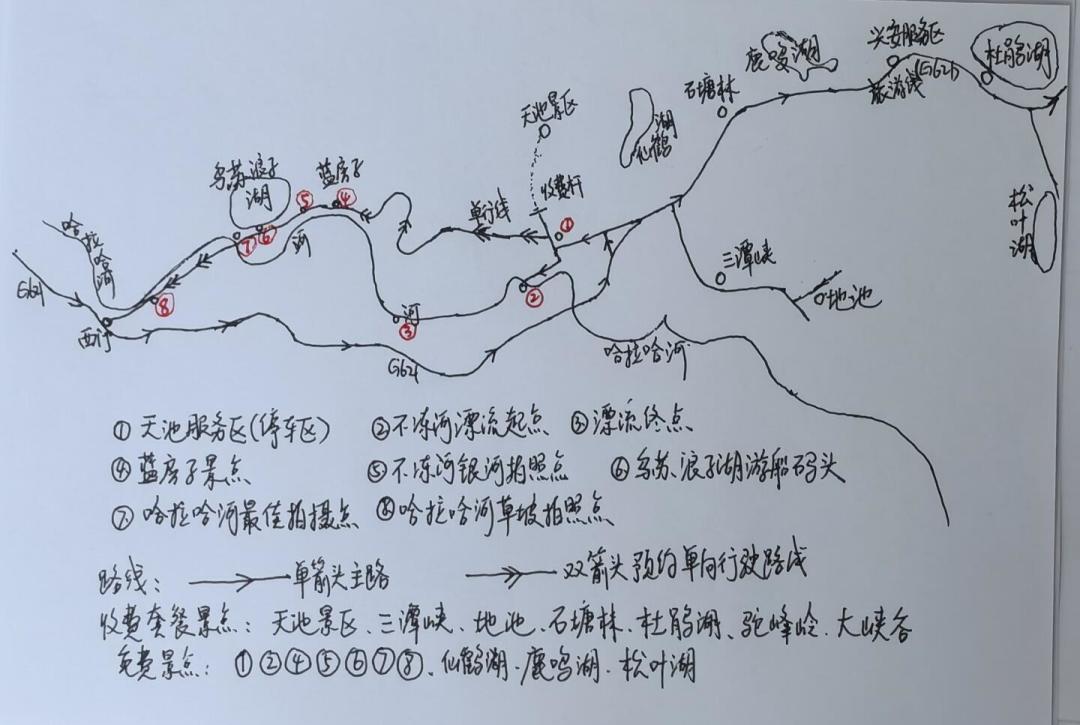 兴安服务区
鹿鸣湖
杜鹃湖
旅游线(G621)
石塘林
天池景区
湖
仙鹤
乌苏浪子
湖
蓝房子
⑤
④
单行线
收费杆
①
松叶湖
哈拉哈河
⑦
⑥
河
三潭峡
G621
⑧
②
地池
西门
河
③
G621
哈拉哈河
①天池服务区(停车区) ②不冻河漂流起点 ③漂流终点
④蓝房子景点 ⑤不冻河银河拍照点 ⑥乌苏浪子湖游船码头
⑦哈拉哈河最佳拍摄点 ⑧哈拉哈河草坡拍照点
路线: 单箭头主路 双箭头预约单向行驶路线
收费套餐景点: 天池景区、三潭峡、地池、石塘林、杜鹃湖、驼峰岭、大峡谷
免费景点: ①②④⑤⑥⑦⑧、仙鹤湖·鹿鸣湖·松叶湖